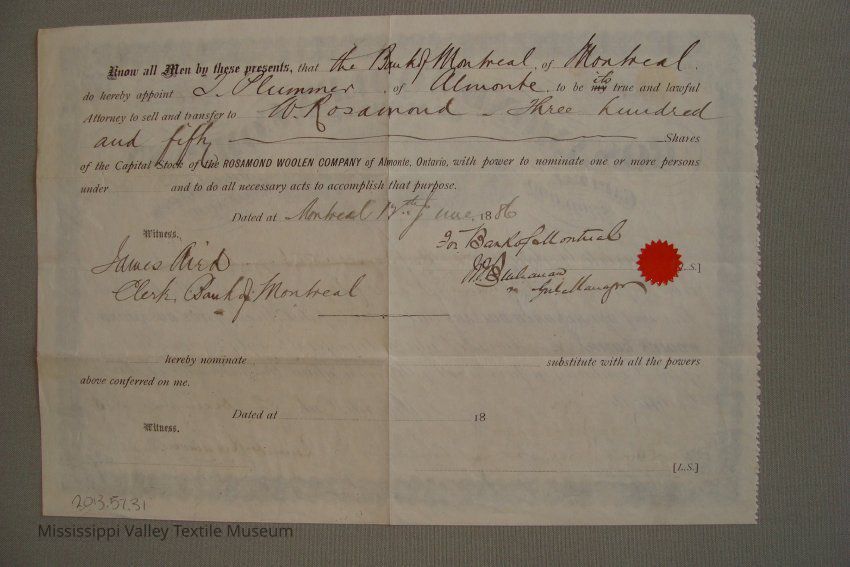 Know all Men by these presents, that the Bank of Montreal, of Montreal
do hereby appoint T. Plummer of Almonte to be its my true and lawful
Attorney to sell and transfer to W. Rosamond Three hundred
and fifty Shares
of the Capital Stock of the ROSAMOND WOOLEN COMPANY of Almonte, Ontario, with power to nominate one or more persons
under and to do all necessary acts to accomplish that purpose.
Dated at Montreal 17th June 1886
Witness.
For Bank of Montreal
James Aird
[L.S.]
W. Buchanan
Clerk, Bank of Montreal
Genl Manager
hereby nominate substitute with all the powers
above conferred on me.
Dated at 18
Witness.
[L.S.]
2013.57.31
Mississippi Valley Textile Museum